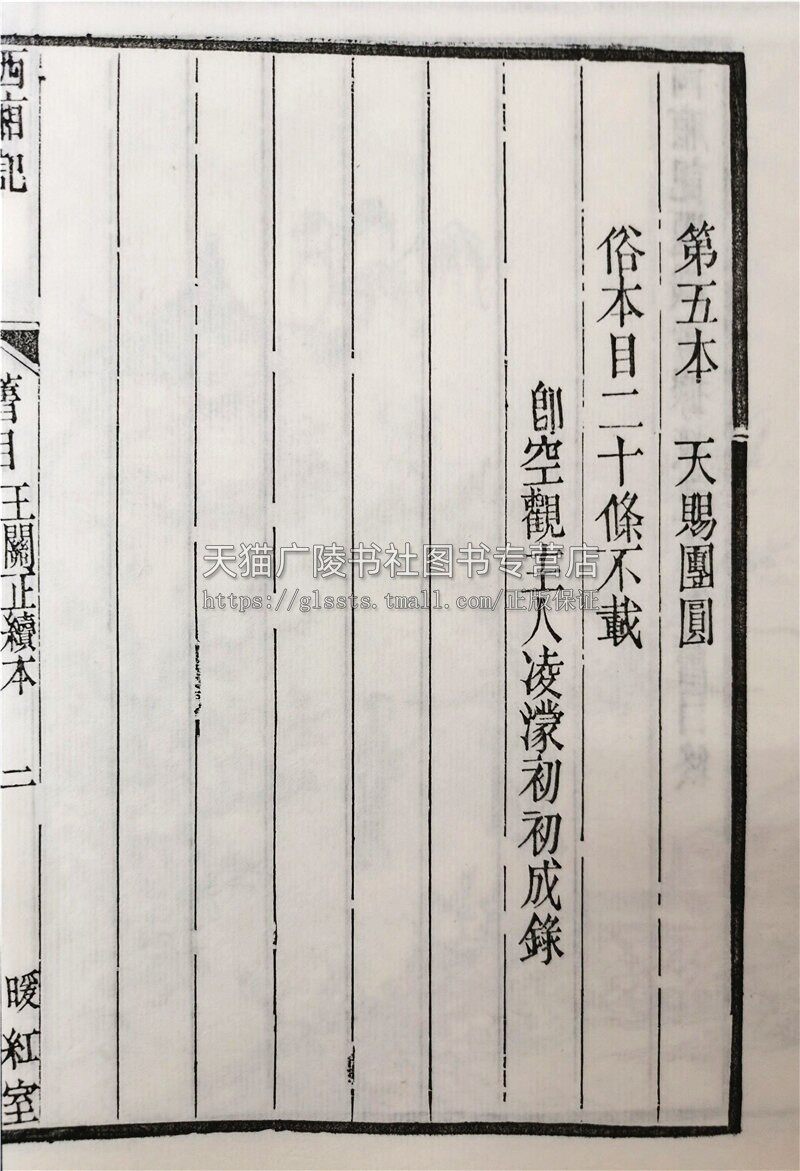 第五本 天賜團圓
俗本目二十條不載
卽空觀主人凌濛初初成錄
西廂記
舊目 王關正續本 二
暖紅室
天猫广陵书社图书专营店
https://glssts.tmall.com/正版保证